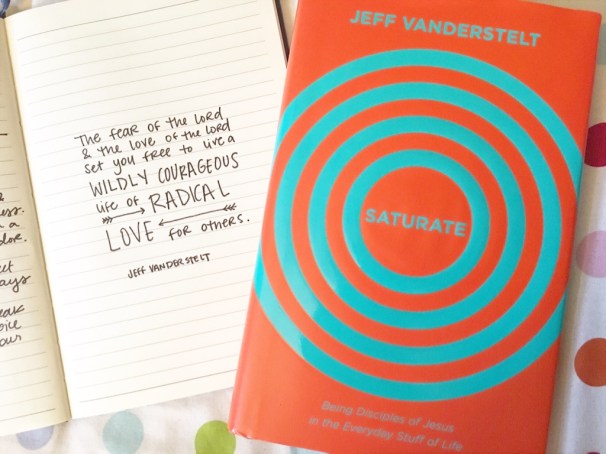 The fear of the Lord
& the love of the Lord
set you free to live a
WILDLY COURAGEOUS
life of RADICAL
LOVE for others.
JEFF VANDERSTELT
JEFF VANDERSTELT
SATURATE
Being Disciples of Jesus
in the Everyday Stuff of Life